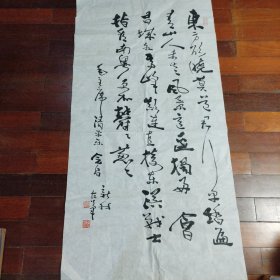 東方欲曉莫道君行早踏遍
青山人未老風景這邊獨好會
昌城外高峰顛連直接東溟戰士
指看南粤更加欝〻葱〻
毛主席清平乐會昌